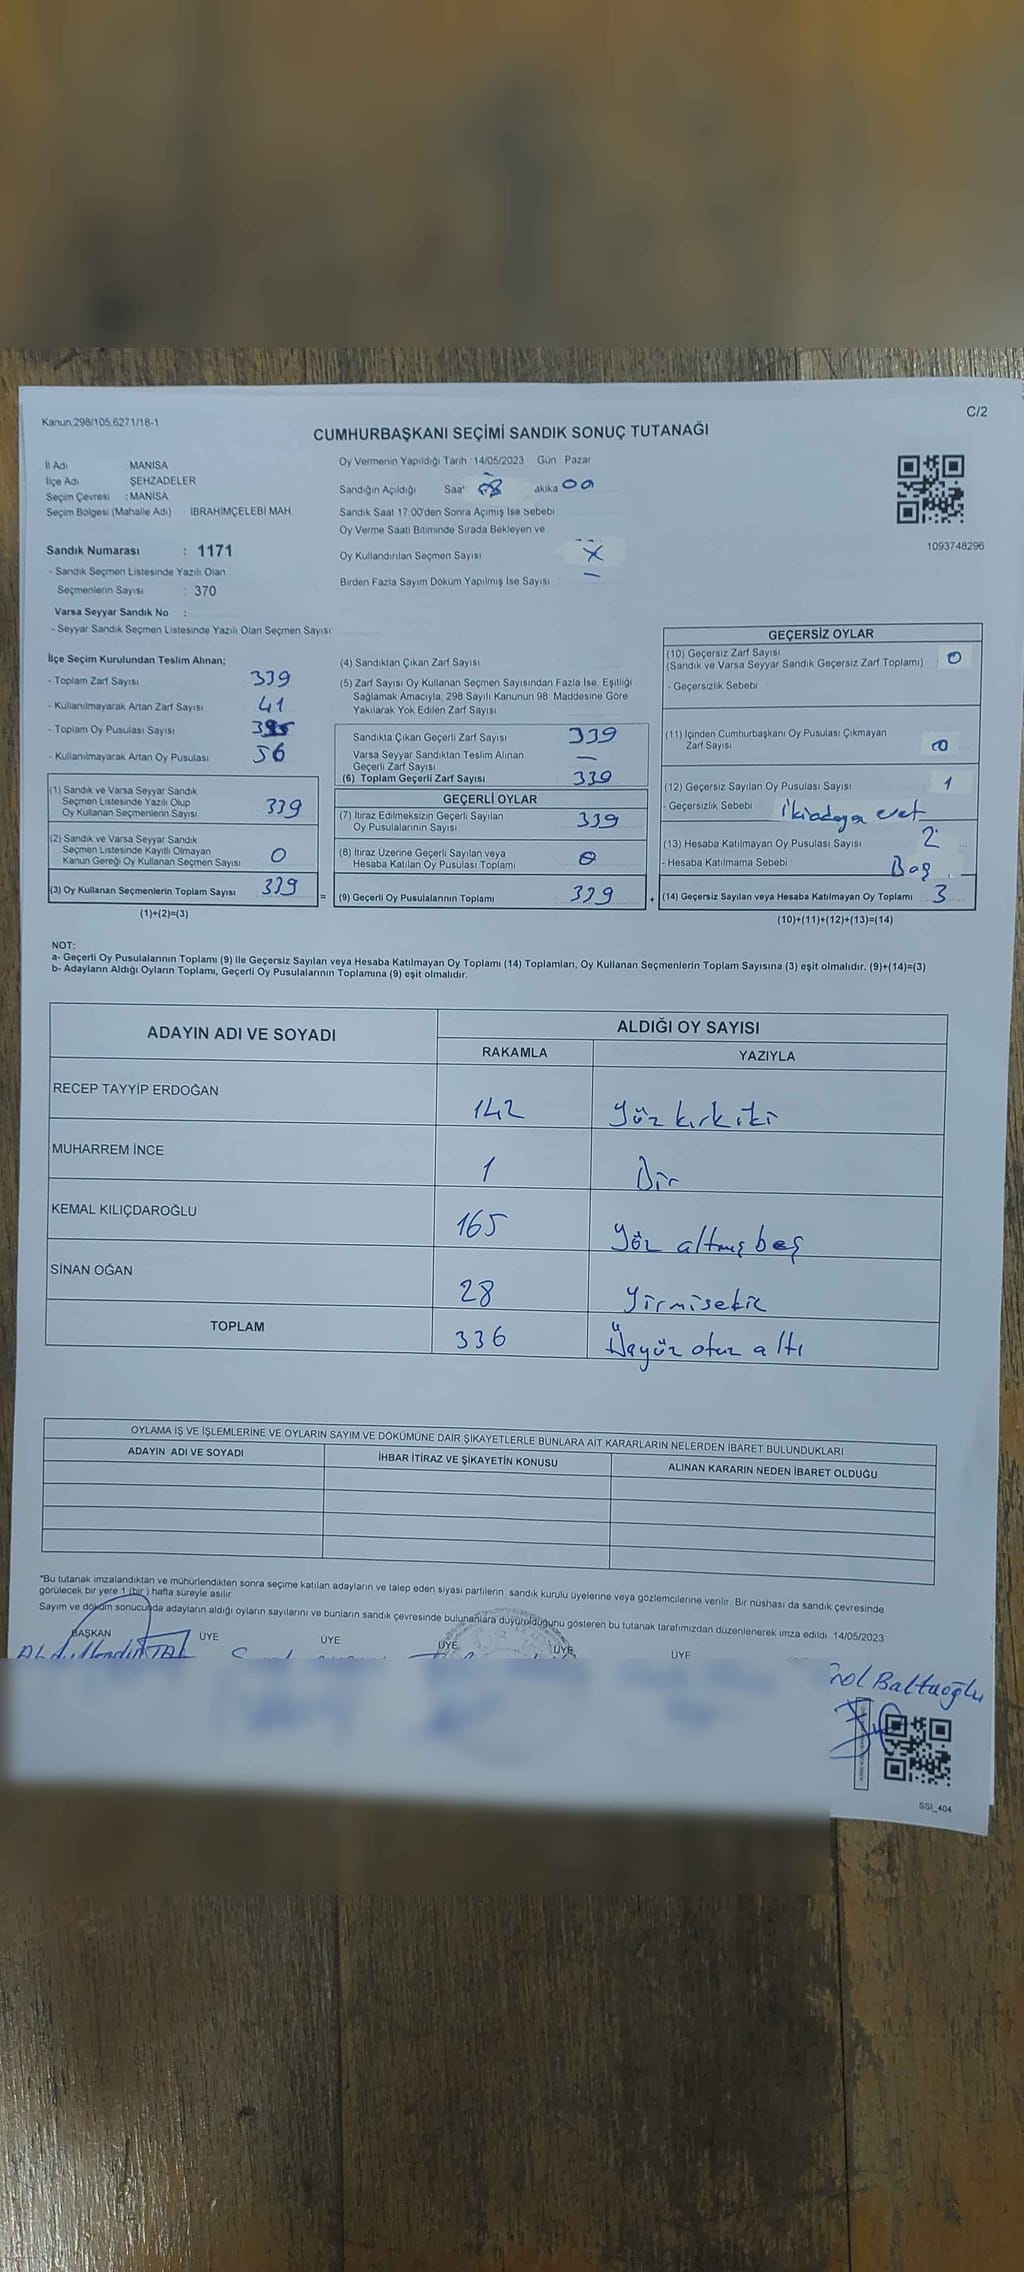 Kanun;298/105;6271/18-1
C/2
CUMHURBAŞKANI SEÇİMİ SANDIK SONUÇ TUTANAĞI
İl Adı MANİSA
İlçe Adı ŞEHZADELER
Seçim Çevresi : MANİSA
Seçim Bölgesi (Mahalle Adı) İBRAHİMÇELEBİ MAH.
Oy Vermenin Yapıldığı Tarih :14/05/2023 Gün Pazar
Sandığın Açıldığı Saat 08 akika 00
Sandık Saat 17:00'den Sonra Açımış İse Sebebi
Oy Verme Saati Bitiminde Sırada Bekleyen ve
Oy Kullandırılan Seçmen Sayısı X
Birden Fazla Sayım Döküm Yapılmış İse Sayısı –
1093748296
Sandık Numarası : 1171
- Sandık Seçmen Listesinde Yazılı Olan
Seçmenlerin Sayısı : 370
Varsa Seyyar Sandık No :
- Seyyar Sandık Seçmen Listesinde Yazılı Olan Seçmen Sayısı:
İlçe Seçim Kurulundan Teslim Alınan;
- Toplam Zarf Sayısı 339
- Kullanılmayarak Artan Zarf Sayısı 41
- Toplam Oy Pusulası Sayısı
- Kullanılmayarak Artan Oy Pusulası 56
(1) Sandık ve Varsa Seyyar Sandık
Seçmen Listesinde Yazılı Olup
Oy Kullanan Seçmenlerin Sayısı 339
(2) Sandık ve Varsa Seyyar Sandık
Seçmen Listesinde Kayıtlı Olmayan
Kanun Gereği Oy Kullanan Seçmen Sayısı 0
(3) Oy Kullanan Seçmenlerin Toplam Sayısı 339
(1)+(2)=(3)
(4) Sandıktan Çıkan Zarf Sayısı
(5) Zarf Sayısı Oy Kullanan Seçmen Sayısından Fazla İse, Eşitliği
Sağlamak Amacıyla; 298 Sayılı Kanunun 98. Maddesine Göre
Yakılarak Yok Edilen Zarf Sayısı
Sandıkta Çıkan Geçerli Zarf Sayısı 339
Varsa Seyyar Sandıktan Teslim Alınan
Geçerli Zarf Sayısı –
(6) Toplam Geçerli Zarf Sayısı 339
GEÇERLİ OYLAR
(7) İtiraz Edilmeksizin Geçerli Sayılan
Oy Pusulalarının Sayısı 339
(8) İtiraz Üzerine Geçerli Sayılan veya
Hesaba Katılan Oy Pusulası Toplamı 0
= (9) Geçerli Oy Pusulalarının Toplamı 339
GEÇERSİZ OYLAR
(10) Geçersiz Zarf Sayısı
(Sandık ve Varsa Seyyar Sandık Geçersiz Zarf Toplamı) 0
- Geçersizlik Sebebi
(11) İçinden Cumhurbaşkanı Oy Pusulası Çıkmayan
Zarf Sayısı 0
(12) Geçersiz Sayılan Oy Pusulası Sayısı 1
- Geçersizlik Sebebi İki adaya evet
(13) Hesaba Katılmayan Oy Pusulası Sayısı 2
- Hesaba Katılmama Sebebi Boş
+ (14) Geçersiz Sayılan veya Hesaba Katılmayan Oy Toplamı 3
(10)+(11)+(12)+(13)=(14)
NOT:
a- Geçerli Oy Pusulalarının Toplamı (9) ile Geçersiz Sayılan veya Hesaba Katılmayan Oy Toplamı (14) Toplamları, Oy Kullanan Seçmenlerin Toplam Sayısına (3) eşit olmalıdır. (9)+(14)=(3)
b- Adayların Aldığı Oyların Toplamı, Geçerli Oy Pusulalarının Toplamına (9) eşit olmalıdır.
ADAYIN ADI VE SOYADI ALDIĞI OY SAYISI
RAKAMLA YAZIYLA
RECEP TAYYİP ERDOĞAN 142 Yüz kırk iki
MUHARREM İNCE 1 Bir
KEMAL KILIÇDAROĞLU 165 Yüz altmış beş
SİNAN OĞAN 28 Yirmisekiz
TOPLAM 336 Üçyüz otuz altı
OYLAMA İŞ VE İŞLEMLERİNE VE OYLARIN SAYIM VE DÖKÜMÜNE DAİR ŞİKAYETLERLE BUNLARA AİT KARARLARIN NELERDEN İBARET BULUNDUKLARI
ADAYIN ADI VE SOYADI İHBAR İTİRAZ VE ŞİKAYETİN KONUSU ALINAN KARARIN NEDEN İBARET OLDUĞU
*Bu tutanak imzalandıktan ve mühürlendikten sonra seçime katılan adayların ve talep eden siyasi partilerin sandık kurulu üyelerine veya gözlemcilerine verilir. Bir nüshası da sandık çevresinde
görülecek bir yere 1 (bir ) hafta süreyle asılır.
Sayım ve döküm sonucunda adayların aldığı oyların sayılarını ve bunların sandık çevresinde bulunanlara duyurulduğunu gösteren bu tutanak tarafımızdan düzenlenerek imza edildi. 14/05/2023
BAŞKAN ÜYE ÜYE ÜYE ÜYE ÜYE
Baltuoğlu
SSI_404